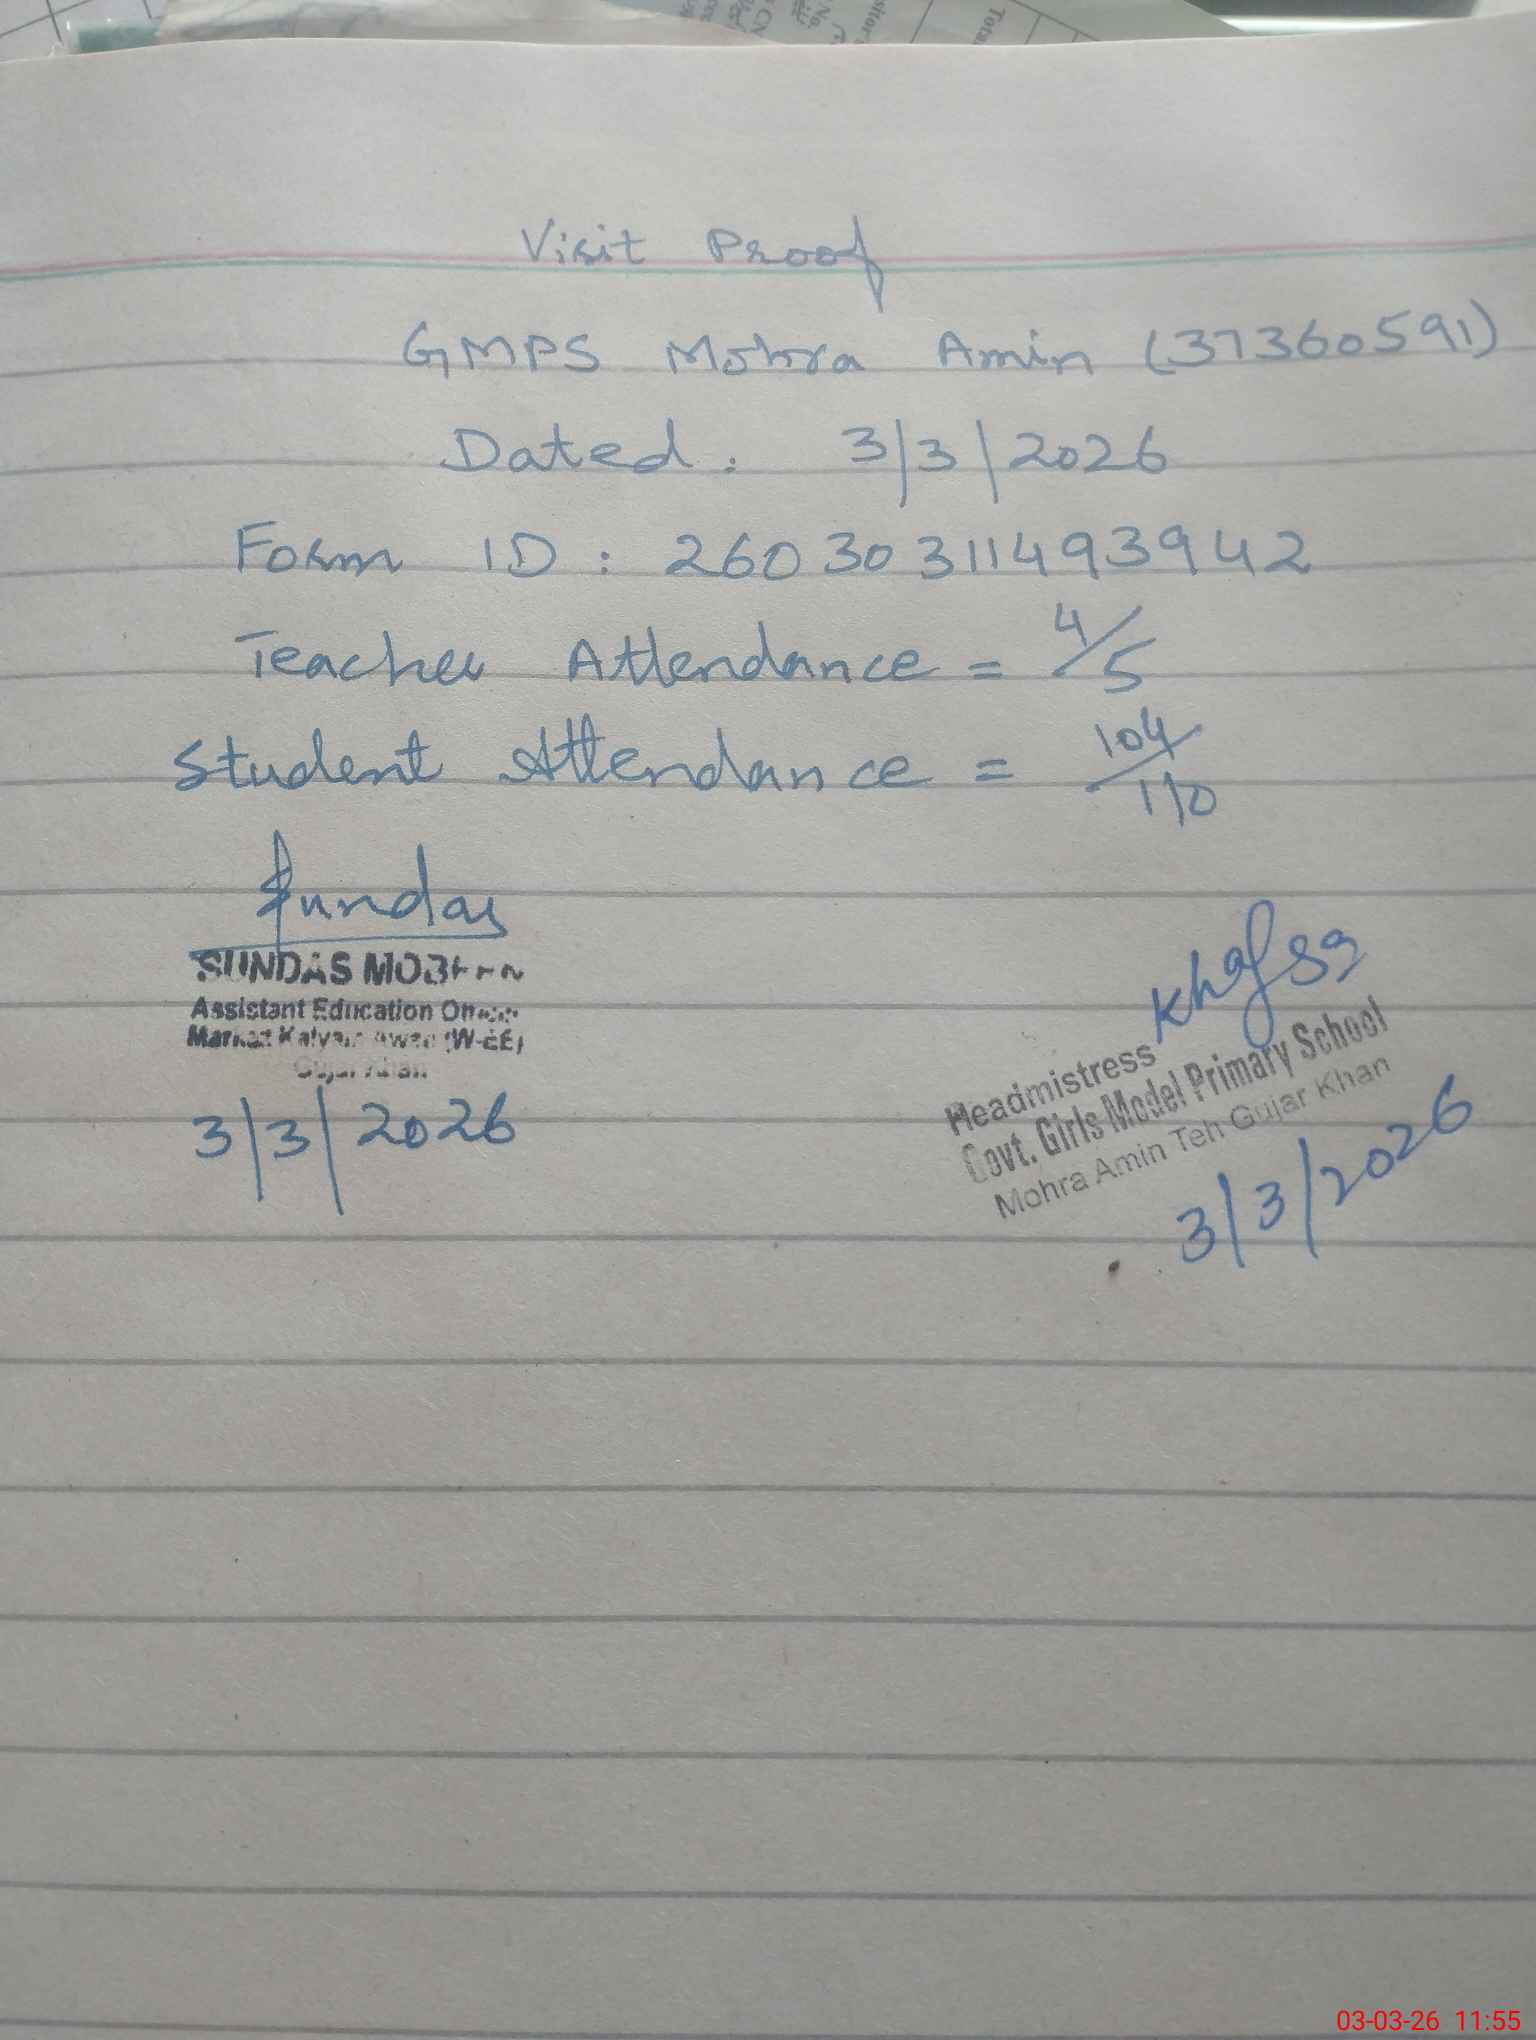 Visit Proof
GMPS Mohra Amin (37360591)
Dated: 3/3/2026
Form ID: 26030311493942
Teacher Attendance = 4/5
Student Attendance = 104/110
Sundas
SUNDAS
Assistant Education
(W-EE)
3/3/2026
Headmistress
Govt. Girls Model Primary School
Mohra Amin Teh Gujar Khan
3/3/2026
Total
03-03-26 11:55